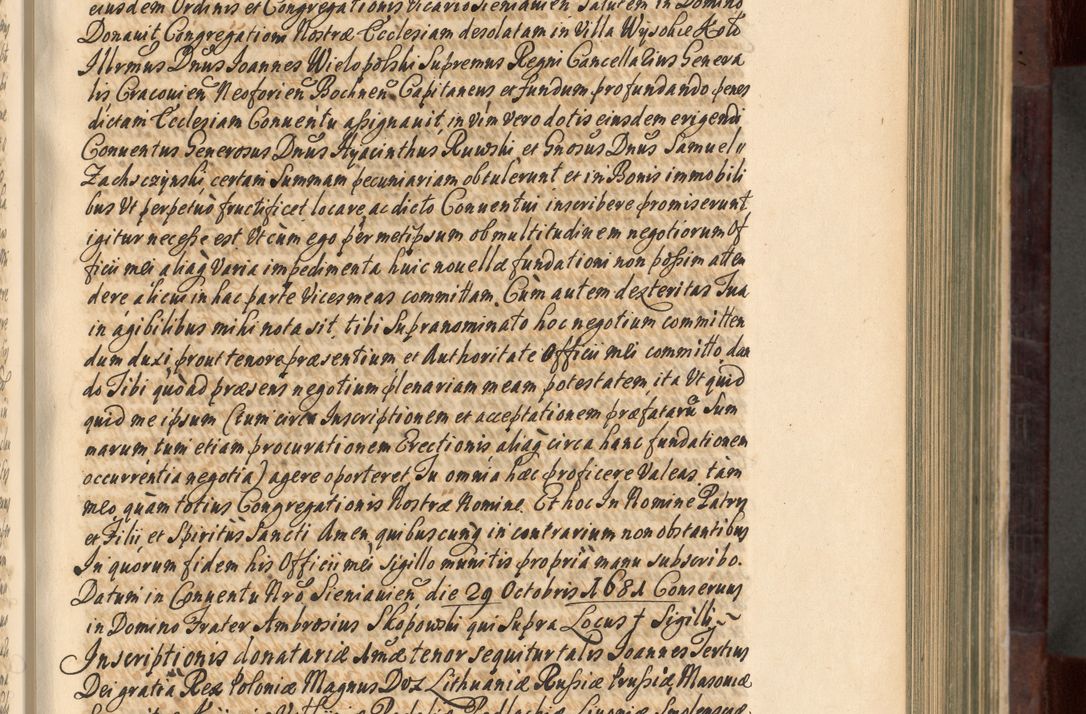 eiusdem Ordinis et Congregationis Vicario Sieniauien Salutem in Domino
Donauit Congregationi Nostræ Ecclesiam desolatam in Villa Wysokie Koło
Illrmus Dnus Joannes Wielopolski Supremus Regni Cancellarius Genera
lis Cracouien Neoforien Bochnen Capitaneus et fundum pro fundando penes
dictam Ecclesiam Conuentu assignauit, in vim vero dotis eiusdem erigendi
Conuentus Generosus Dnus Hyacinthus Ruwski et Gnosus Dnus Samuel
Zachsczynski certam Summam pecuniariam obtulerunt et in Bonis immobili
bus Vt perpetuò fructificet locare, ac dicto Conuentui inscribere promiserunt
igitur necesse est Vt cùm ego per metipsum ob multitudinem negotiorum Of
ficii mei aliaq Varia impedimenta huic nouellæ fundationi non possim atten
dere alicui in hac parte Vices meas committam. Cùm autem dexteritas Tua
in agibilibus mihi nota sit, tibi Supranominato hoc negotium committen
dum duxi prout tenore præsentium et Authoritate Officii mei committo dan
do Tibi quò ad præsens negotium plenariam meam potestatem ita Vt quid
quid me ipsum (tum circa Inscriptionem et acceptationem præfatarũ Sum
marum tum etiam procurationem Erectionis aliaq circa hanc fundationem
occurrentia negotia) agere oporteret, Tu omnia hæc proficere Valeas tàm
meo quàm totius Congregationis Nostræ Nomine. Et hoc In Nomine Patrys
et Filii et Spiritûs Sancti Amen, quibuscunq in contrarium non obstantibus
In quorum fidem his Officii mei sigillo munitis propriâ manu subscribo.
Datum in Conuentu Nrõ Sieniauien die 29 Octobris 1681 Conseruus
in Domino Frater Ambrosius Skopowski qui Supra Locus † Sigilli ~
Inscriptionis donatariæ Armæ tenor sequitur talis Joannes Tertius
Dei gratiâ Rex Poloniæ Magnus Dux Lithuaniæ Russiæ Prussiæ, Masouiæ